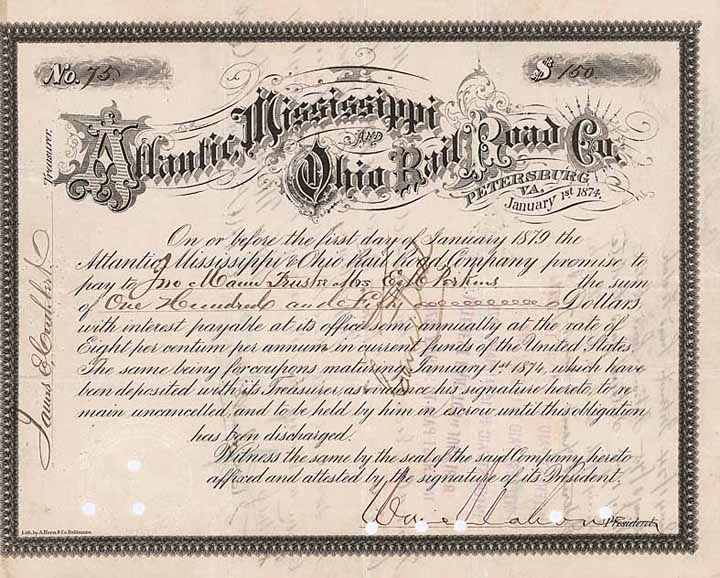 No. 75
$ 150
Atlantic, Mississippi
AND
Ohio Rail Road Co.
PETERSBURG
VA.
January 1st 1874.
On or before the first day of January 1879 the
Atlantic Mississippi & Ohio Rail Road Company promise to
pay to Jno Mann Trustee Mrs E Perkins the sum
of One Hundred and Fifty Dollars
with interest payable at its office semi annually at the rate of
Eight per centum per annum in current funds of the United States.
The same being for coupons maturing January 1st 1874, which have
been deposited with its Treasurer, as evidence his signature hereto, to re
main uncancelled, and to be held by him in escrow until this obligation
has been discharged.
Witness the same by the seal of the said Company hereto
affixed and attested by the signature of its President.
President
Treasurer.
James
Lith. by A. Hoen & Co. Baltimore.